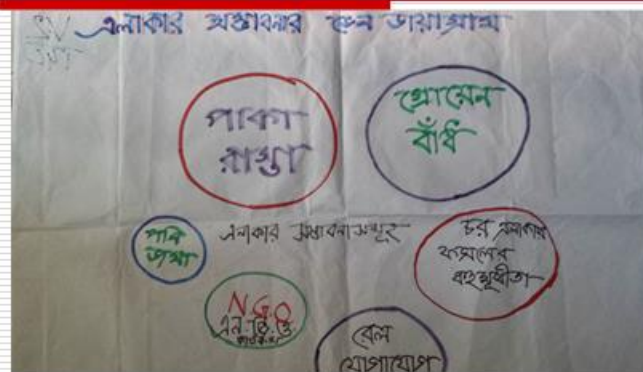 এলাকার সম্ভাবনার ভেন ডায়াগ্রাম
পাকা
রাস্তা
গ্রোয়েন
বাঁধ
এলাকার সম্ভাবনাসমূহ
চর এলাকার
ফসলের
বহুমুখীতা
N.G.O
এন.জি.ও
রেল
যোগাযোগ